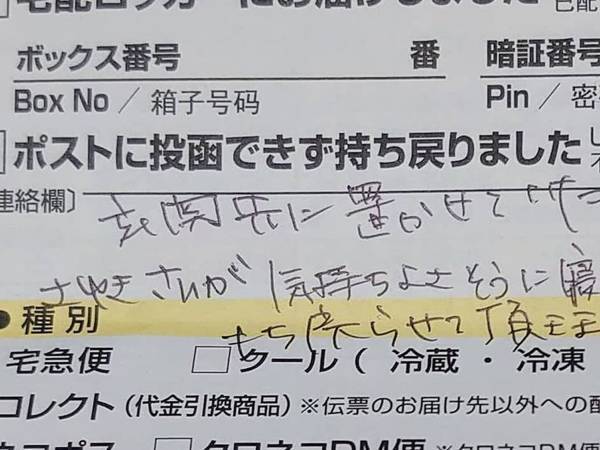 宅配ロッカーにお届けしました
ボックス番号 番 暗証番号
Box No / 箱子号码 Pin / 密
ポストに投函できず持ち戻りました
連絡欄〕 玄関先に置かせて
が気持ちよさそうに寝
● 種別 もち戻らせて頂きま
宅急便 □クール ( 冷蔵 ・ 冷凍
コレクト (代金引換商品) ※伝票のお届け先以外への配
ネコポス □クロネコDM便 ※クロネコDM便